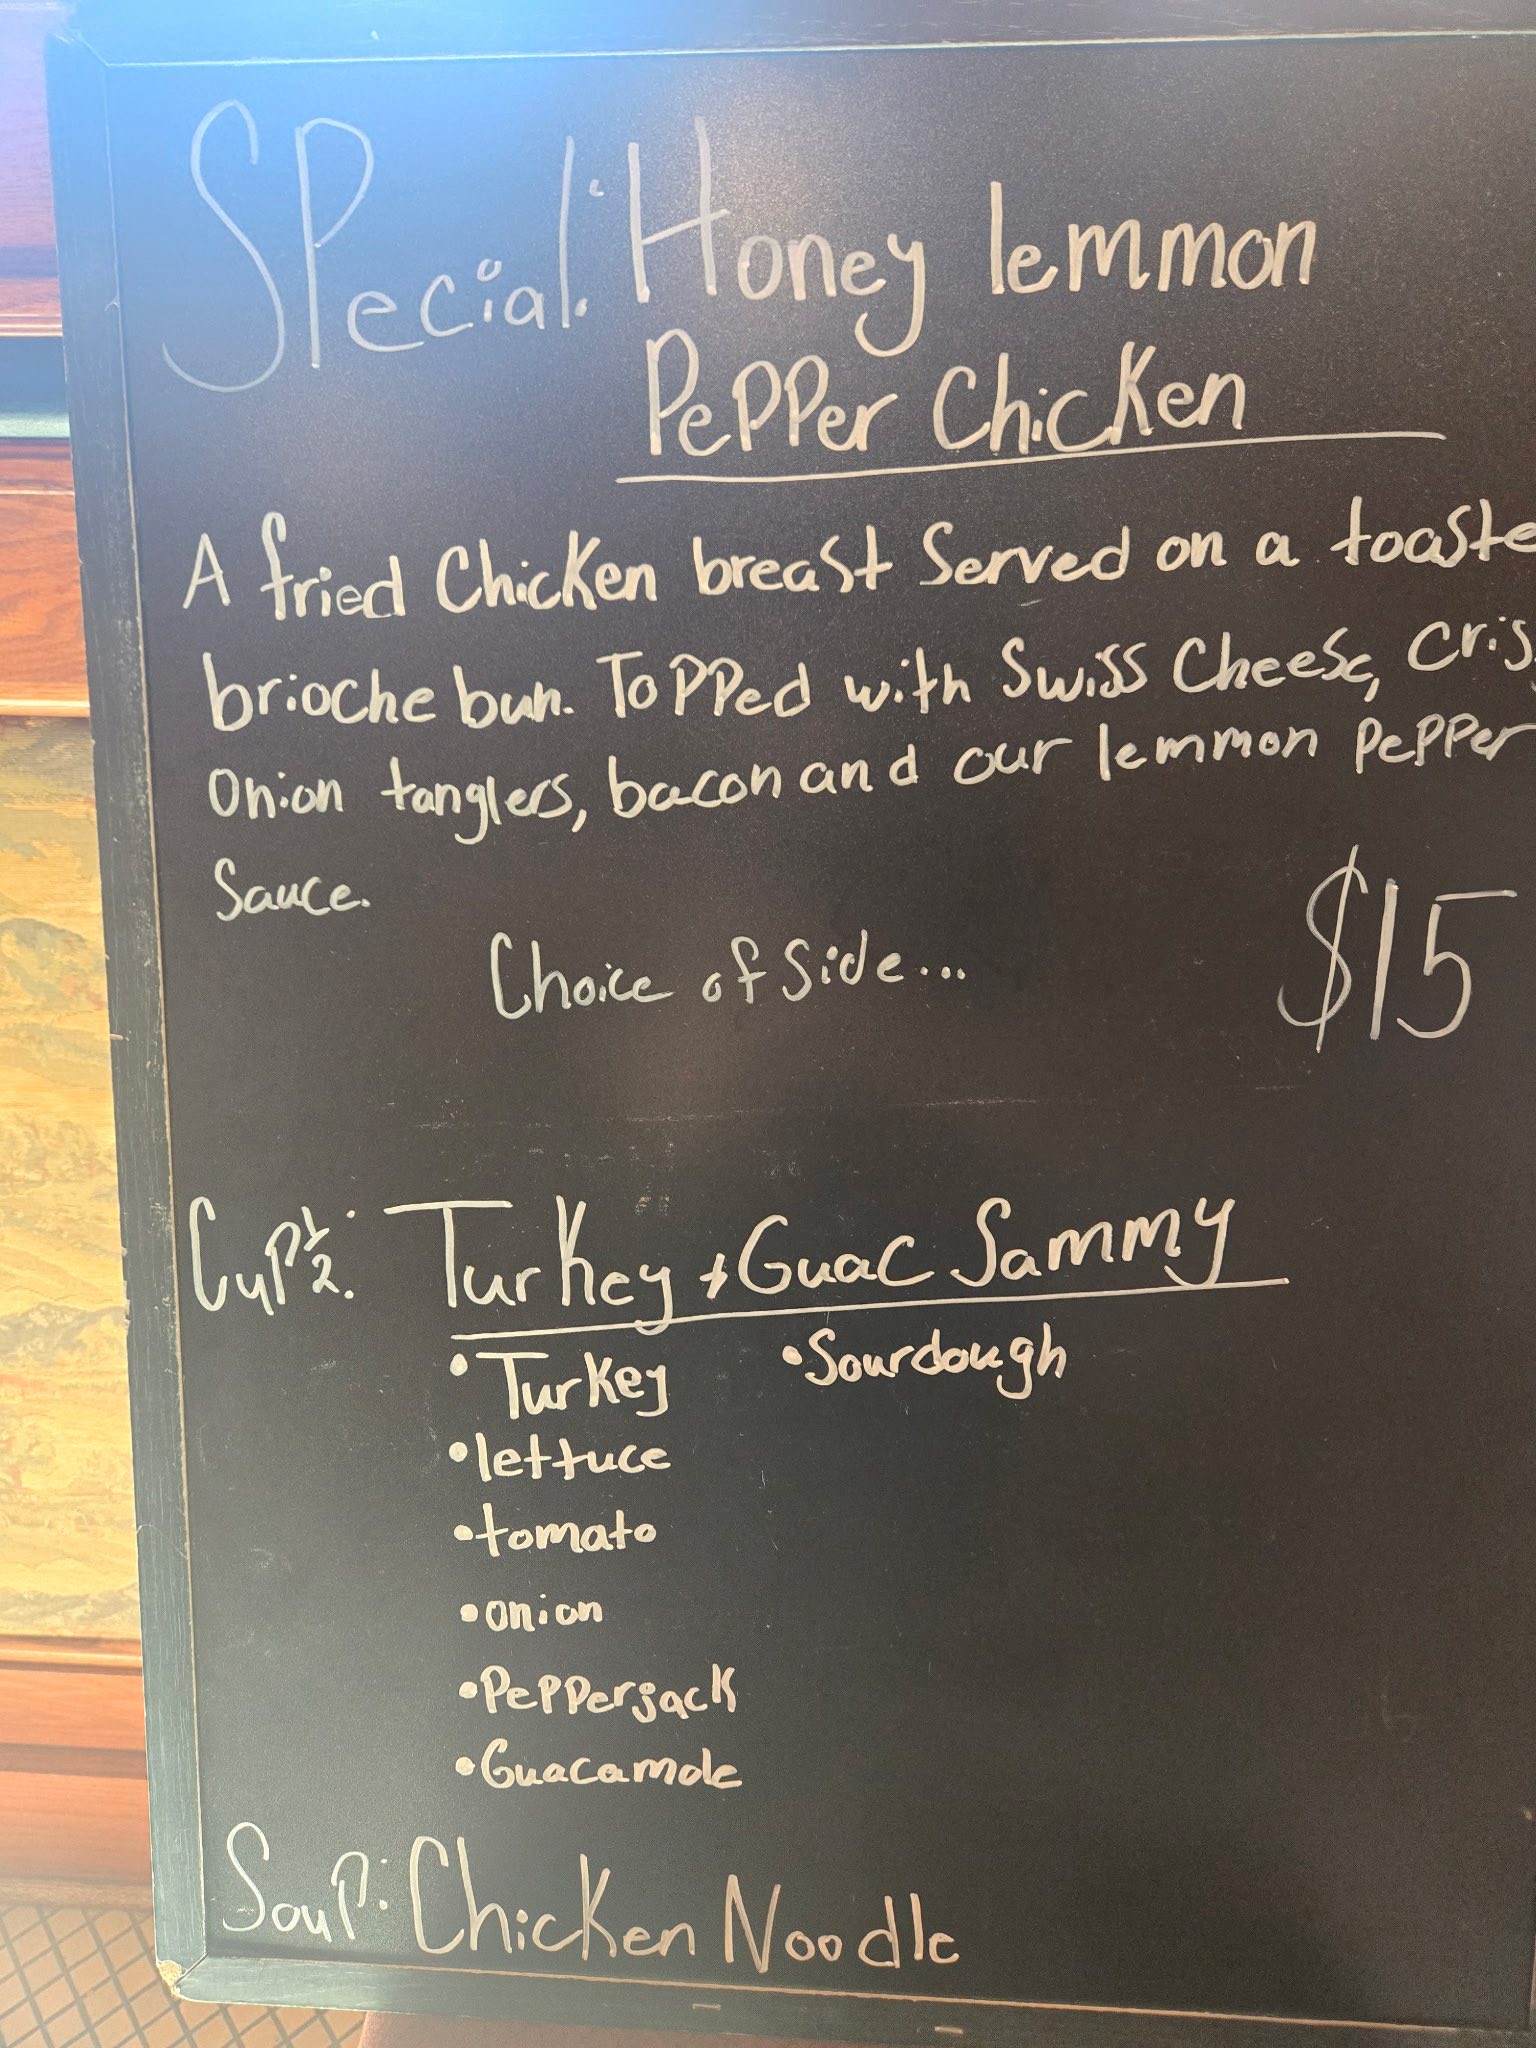 SPecial: Honey lemmon
PePPer Chicken
A fried Chicken breast Served on a toaste
brioche bun. ToPPed with Swiss Cheese, Cris
Onion tanglers, bacon and our lemmon PePPer
Sauce.
Choice of Side...
$15
CuP 1/2: Turkey + Guac Sammy
• Turkey • Sourdough
• lettuce
• tomato
• onion
• PePPerjack
• Guacamole
SouP: Chicken Noodle